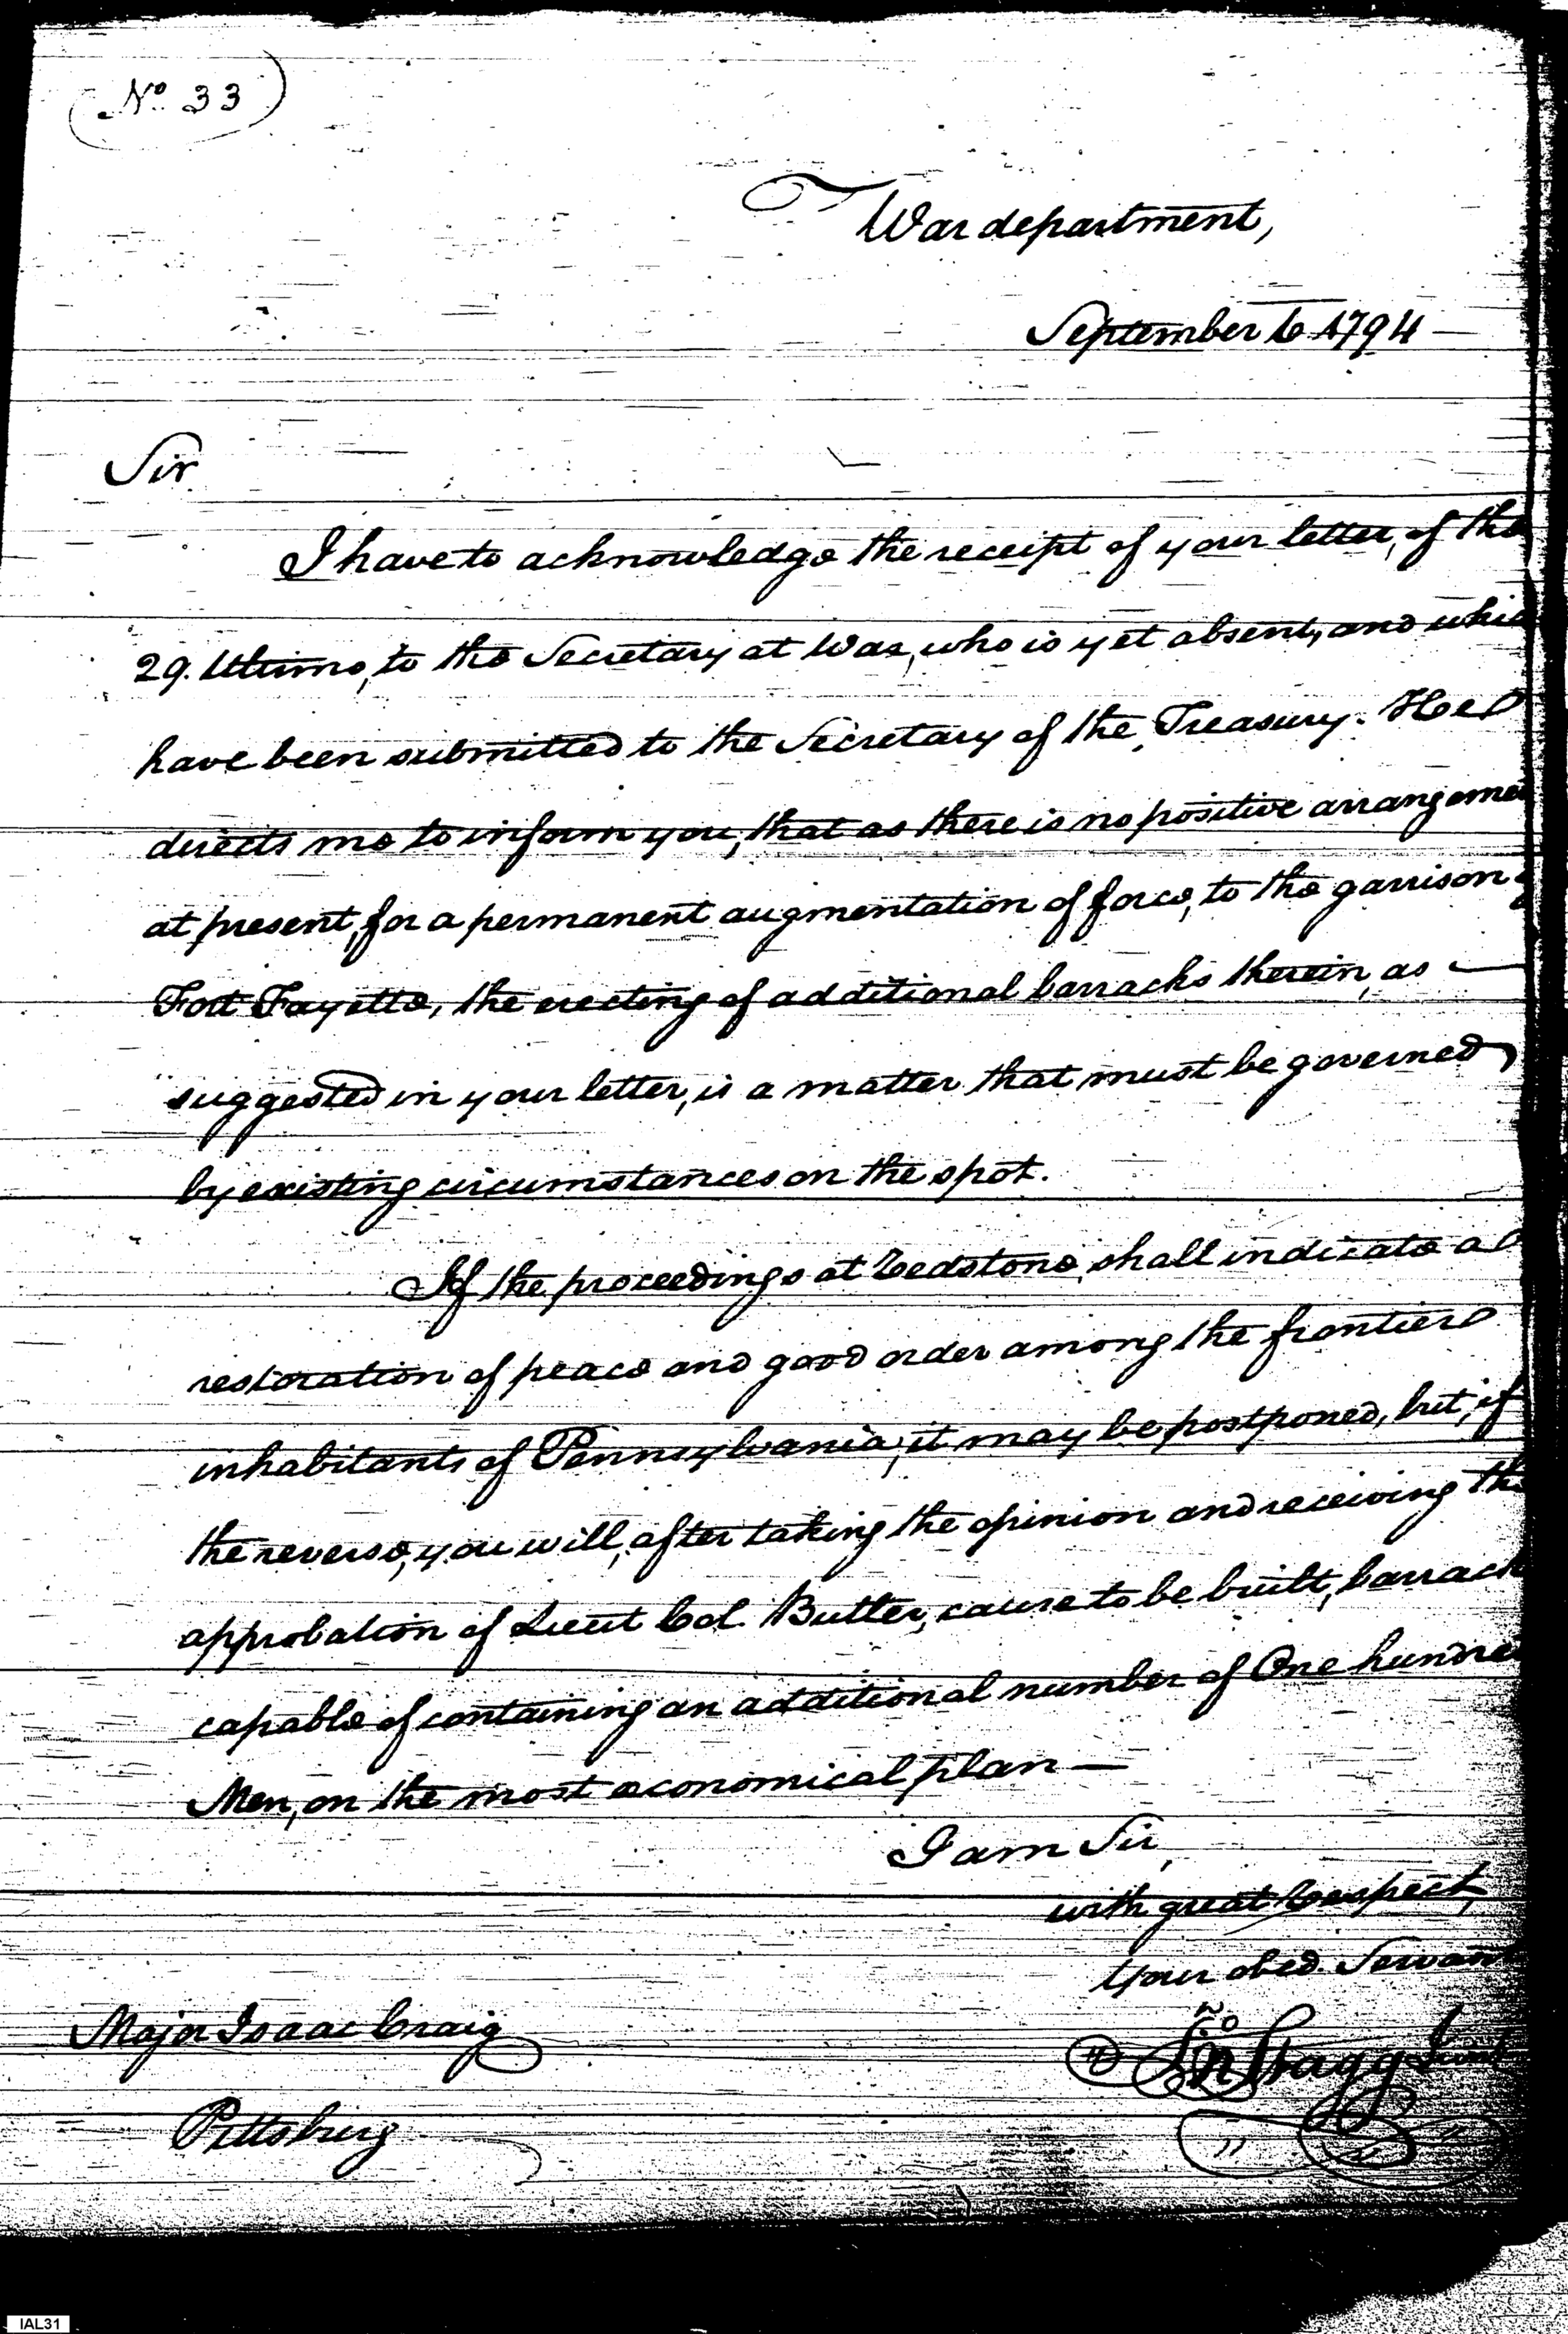 No 33
War department,
September 6 1794 —
Sir
I have to acknowledge the receipt of your letter, of the
29. Ultimo, to the Secretary at War, who is yet absent, and whic
have been submitted to the Secretary of the Treasury. He
directs me to inform you, that as there is no positive arrangeme
at present, for a permanent augmentation of force, to the garrison
Fort Fayette, the erecting of additional barracks therein, as —
suggested in your letter, is a matter that must be governed,
by existing circumstances on the spot.
If the proceedings at Redstone, shall indicate a
restoration of peace and good order among the frontier
inhabitants of Pennsylvania, it may be postponed, but, if
the reverse, you will, after taking the opinion and receiving the
approbation of Lieut Col. Butler, cause to be built, barrack
capable of containing an additional number of One hundre
Men, on the most economical plan —
I am Sir,
with great Respect,
Your obed. Servant
Jno Stagg Junr
Major Isaac Craig
Pittsburg
IAL31